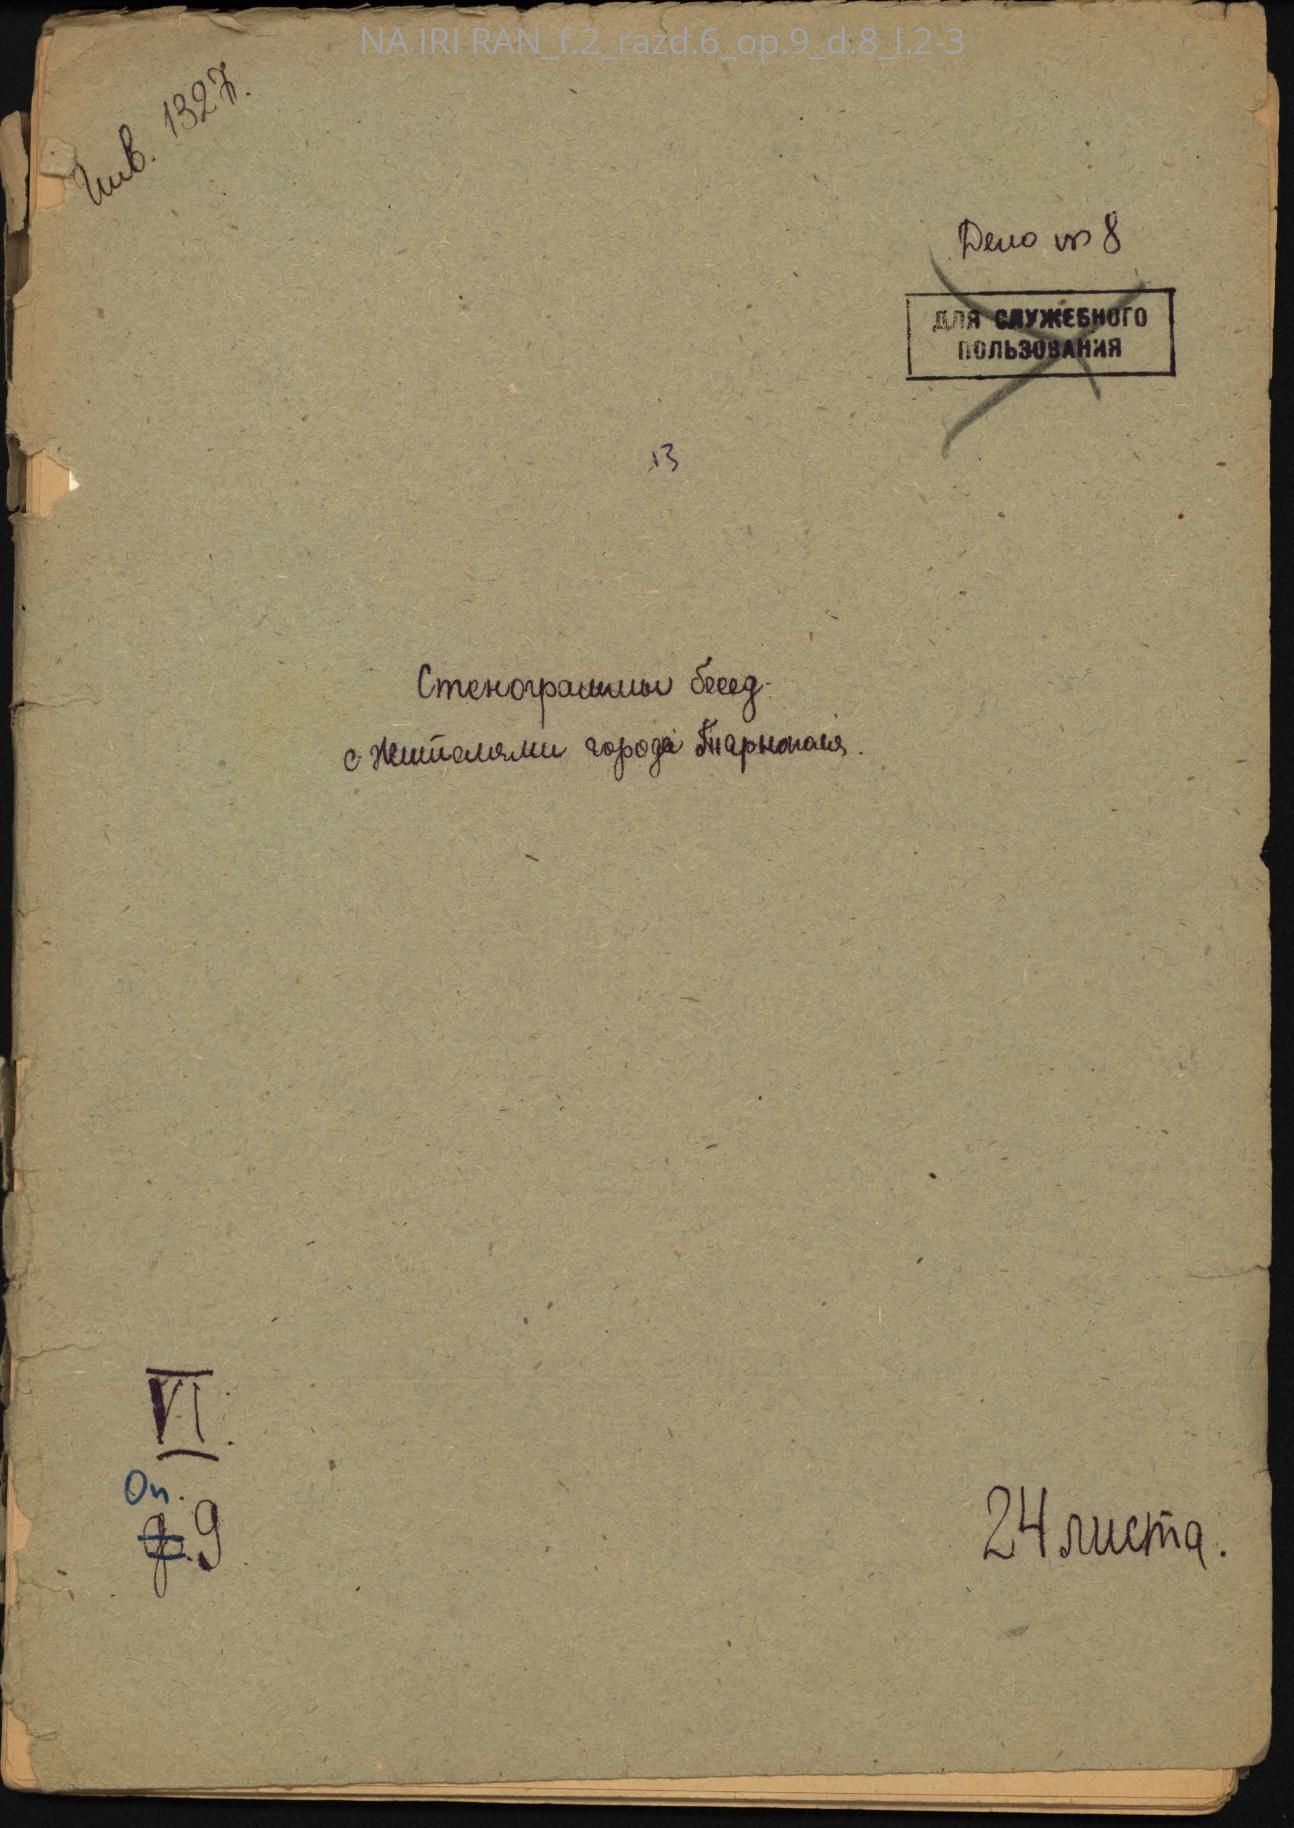 NA IRI RAN_f.2_razd.6_op.9_d.8_l.2-3
Инв. 1327.
Дело № 8
ДЛЯ СЛУЖЕБНОГО
ПОЛЬЗОВАНИЯ
13
Стенограммы бесед
с жителями города Тарнополя.
VI.
Оп.
ф. 9
24 листа.